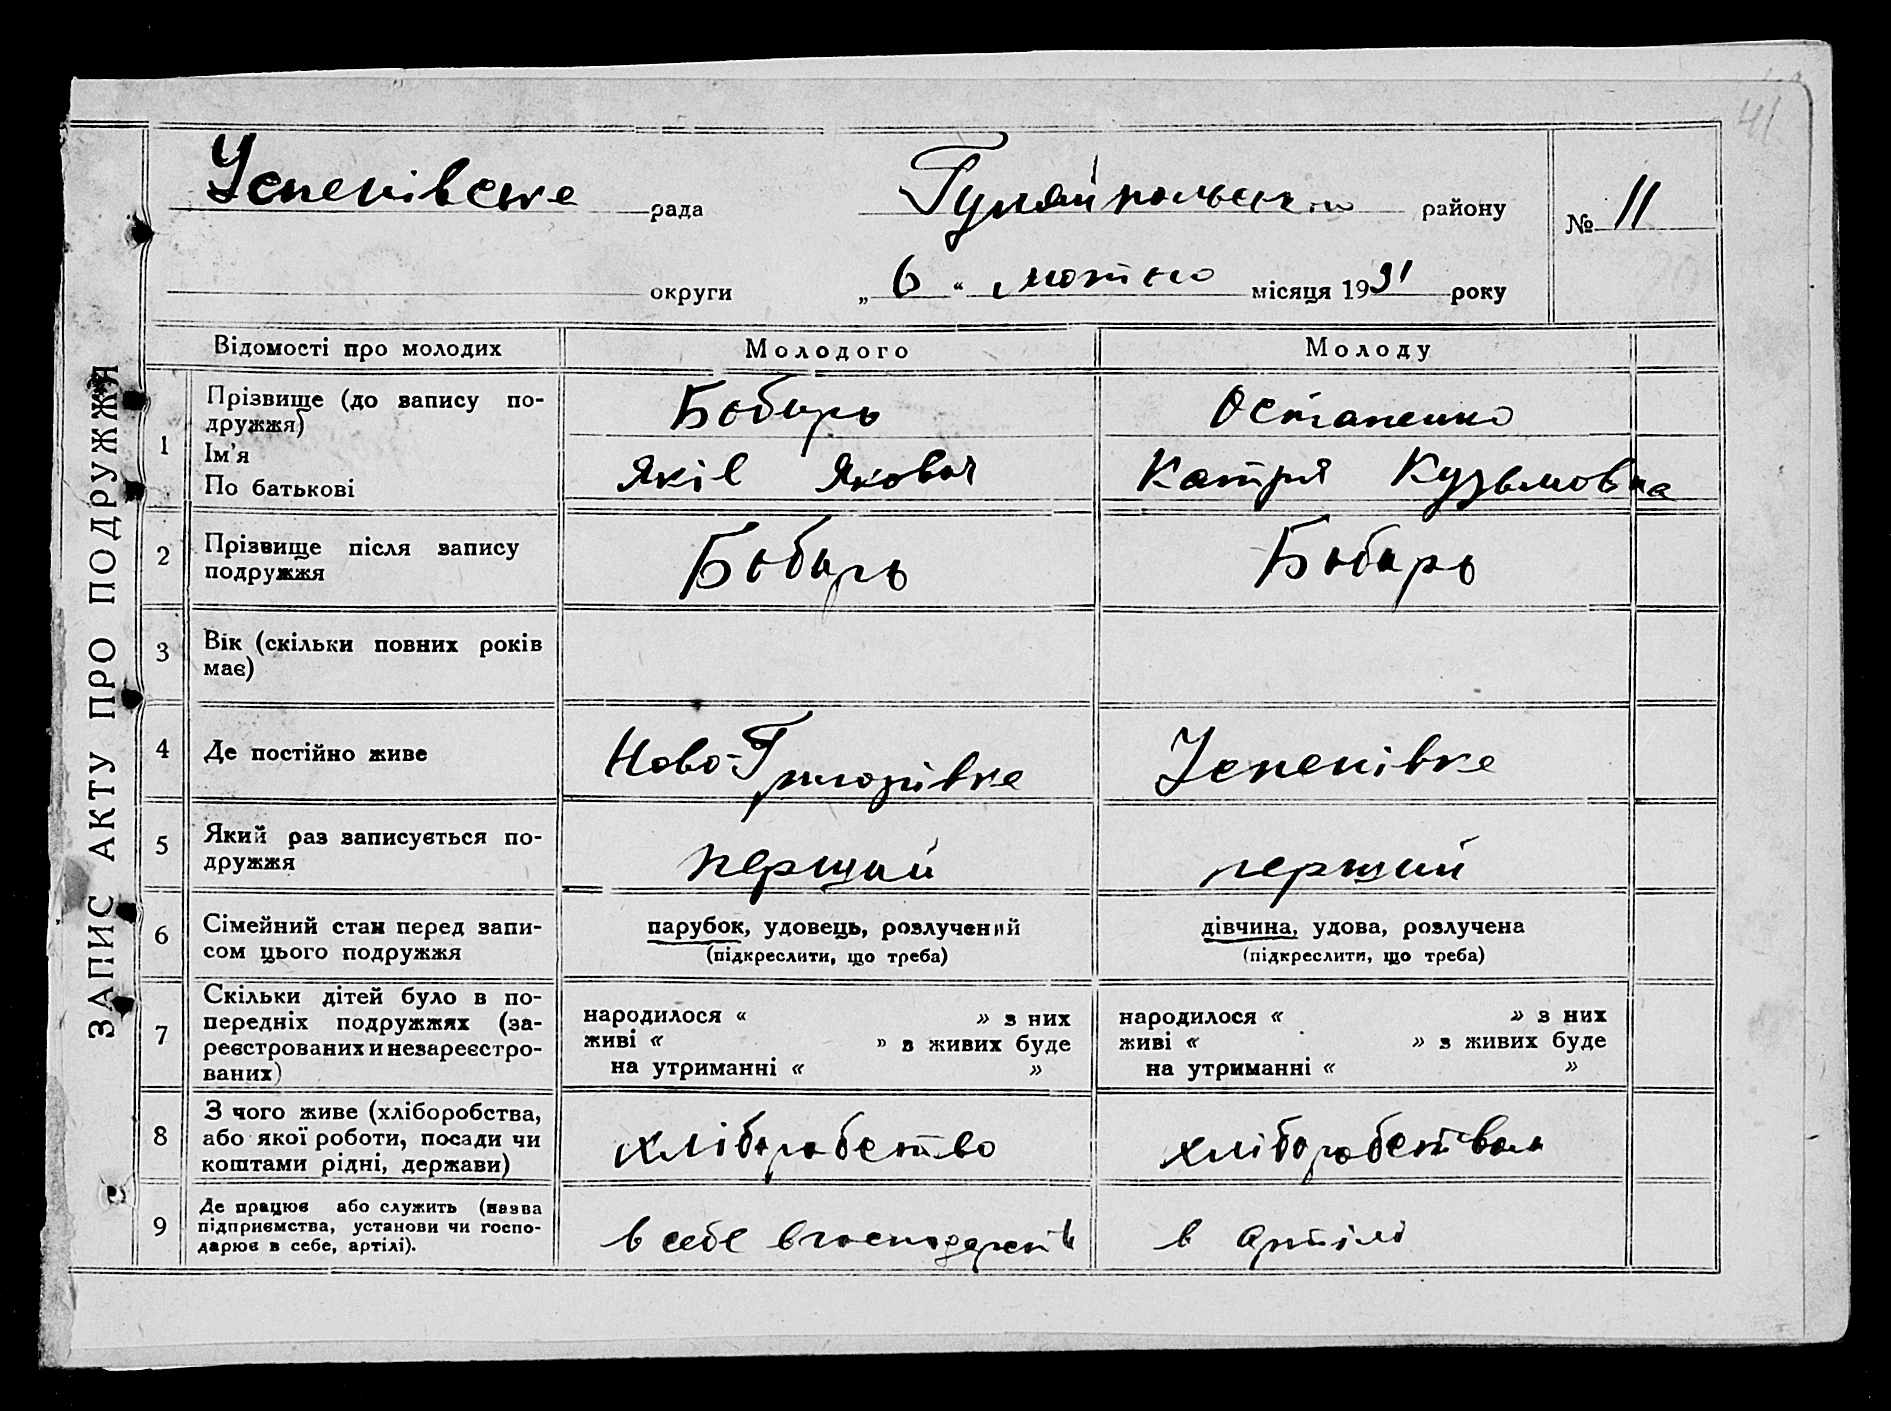 41
Успенівська рада Гуляйпольського району № 11
округи „ 6 “ лютого місяця 1931 року
ЗАПИС АКТУ ПРО ПОДРУЖЖЯ
Відомості про молодих Молодого Молоду
1 Прізвище (до запису по-
дружжя) Бобирь Остапенко
Ім'я
По батькові Яків Якович Катря Кузьмовна
2 Прізвище після запису
подружжя Бобирь Бобирь
3 Вік (скільки повних років
має)
4 Де постійно живе Ново-Григорівка Успенівка
5 Який раз записується по-
дружжя перщий перщий
6 Сімейний стан перед запи-
сом цього подружжя
парубок, удовець, розлучений
(підкреслити, що треба)
дівчина, удова, розлучена
(підкреслити, що треба)
7 Скільки дітей було в по-
передніх подружжях (за-
реєстрованих и незареєстро-
ваних)
народилося « » з них
живі « » з живих буде
на утриманні « »
народилося « » з них
живі « » з живих буде
на утриманні « »
8 З чого живе (хліборобства,
або якої роботи, посади чи
коштами рідні, держави)
хліборобство хліборобством
9 Де працює або служить (назва
підприємства, установи чи госпо-
дарює в себе, артілі).
в себе в в артілі